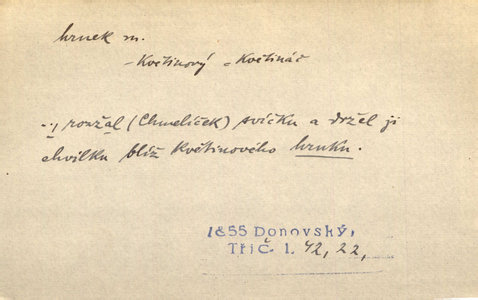 hrnek m.
- Květinový = Květináč
..., rozžal (Chmelíček) svíčku a držel ji
chvilku blíž Květinového hrnku.
1855 Donovský,
Třič 1. 42, 22,